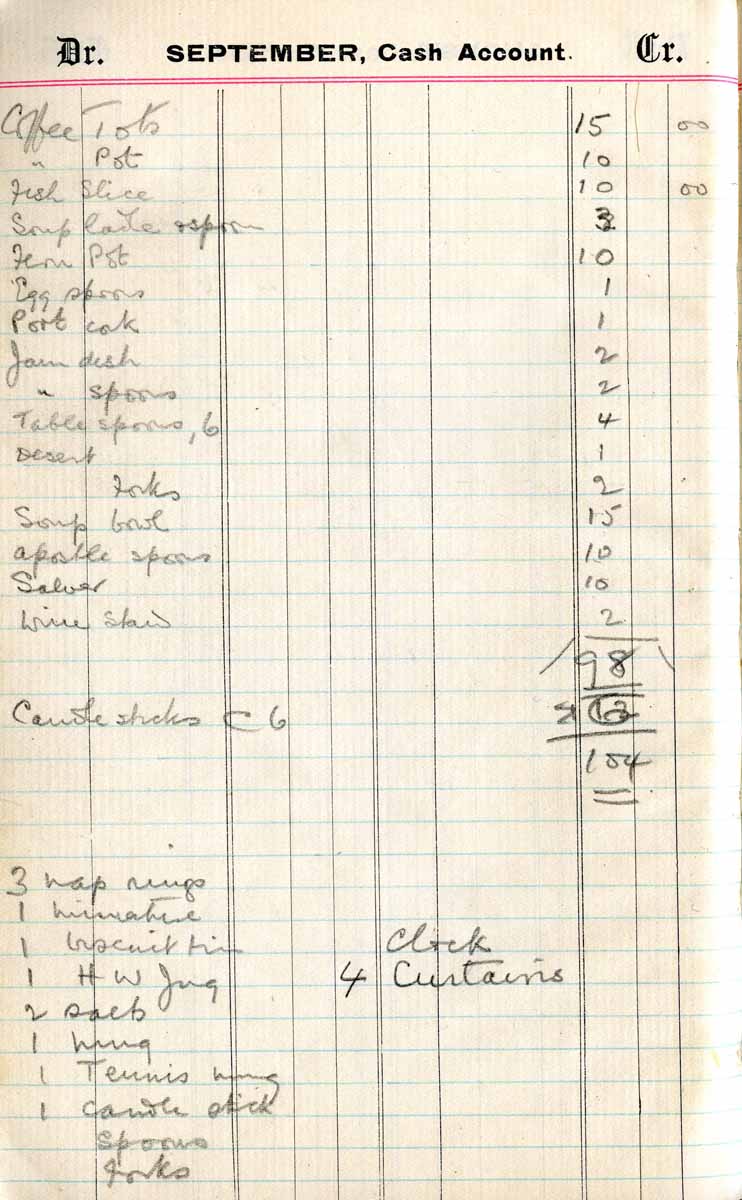 Dr. SEPTEMBER, Cash Account. Cr.
Coffee Pots 15 00
" Pot 10
Fish Slice 10 00
Soup ladle & spoon 3
Fern Pot 10
Egg spoons 1
Port cork 1
Jam dish 2
" spoons 2
Table spoons, 6 4
Desert 1
Forks 2
Soup bowl 15
apostle spoons 10
Salver 10
Wine stand 2
98
Candle sticks 6
104
3 nap rings
1 miniature
1 biscuit tin Clock
1 H W Jug 4 Curtains
2 salts
1 mug
1 Tennis mug
1 candle stick
Spoons
Forks